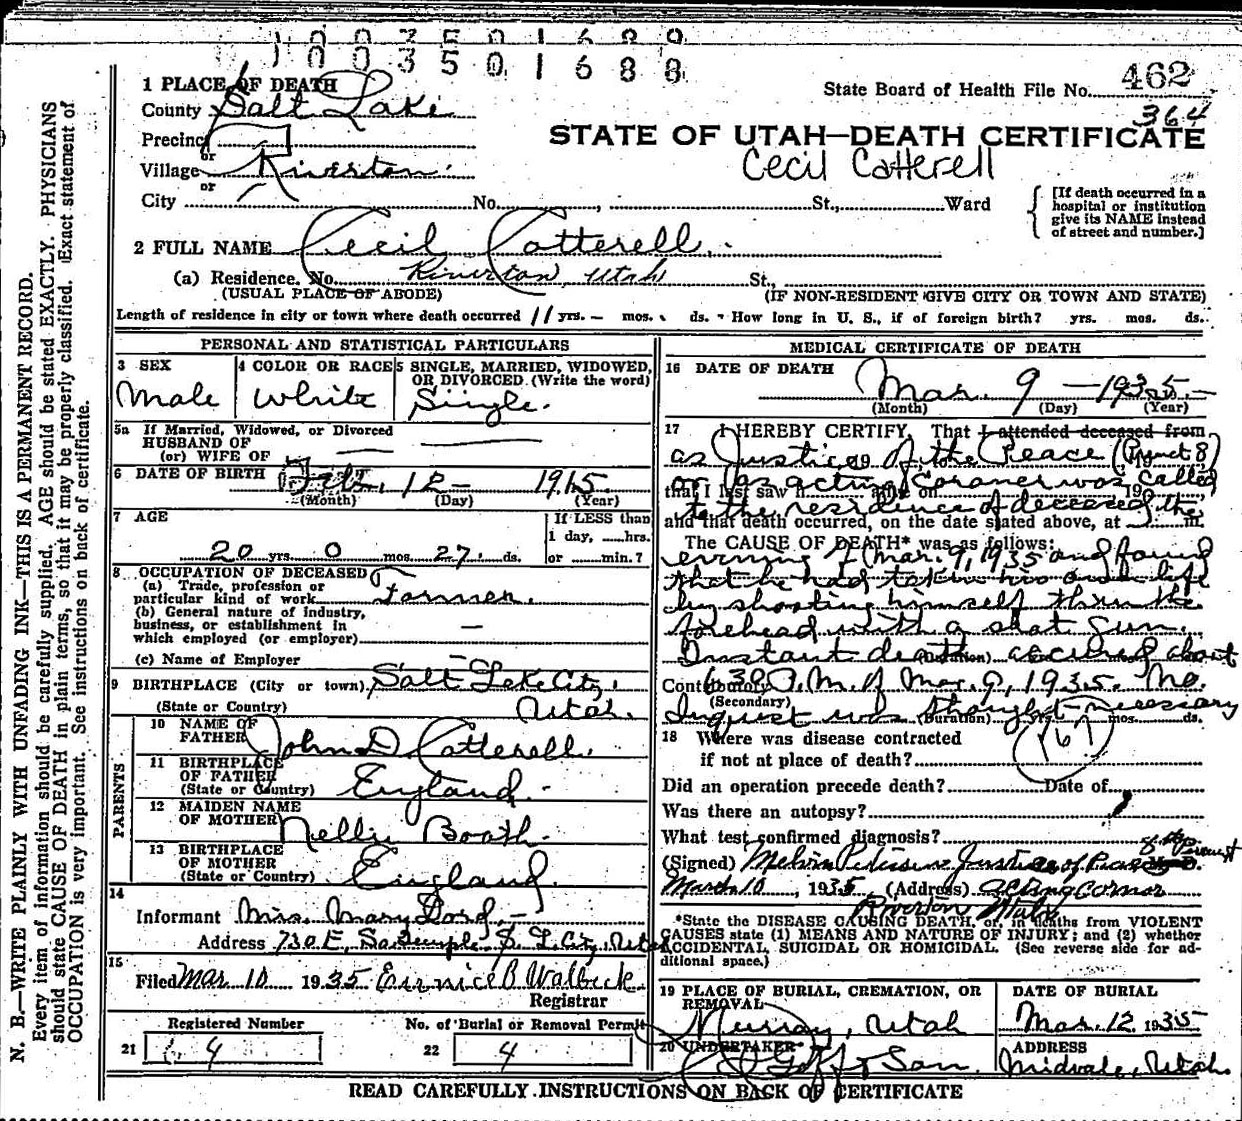 1003501688
1003501688
462
State Board of Health File No.
364
1 PLACE OF DEATH
County Salt Lake
Precinct
or
Village Riverton
or
City No. St., Ward
STATE OF UTAH—DEATH CERTIFICATE
Cecil Catterell
[If death occurred in a hospital or institution give its NAME instead of street and number.]
2 FULL NAME Cecil Catterell
(a) Residence. No. Riverton, Utah St.,
(USUAL PLACE OF ABODE) (IF NON-RESIDENT GIVE CITY OR TOWN AND STATE)
Length of residence in city or town where death occurred 11 yrs. — mos. ds. How long in U. S., if of foreign birth? yrs. mos. ds.
PERSONAL AND STATISTICAL PARTICULARS
3 SEX
Male
4 COLOR OR RACE
White
5 SINGLE, MARRIED, WIDOWED, OR DIVORCED (Write the word)
Single.
5a If Married, Widowed, or Divorced
HUSBAND OF
(or) WIFE OF
6 DATE OF BIRTH Feb. 12 — 1915
(Month) (Day) (Year)
7 AGE
20 yrs. 0 mos. 27 ds.
If LESS than
1 day, hrs.
or min.?
8 OCCUPATION OF DECEASED
(a) Trade, profession or
particular kind of work Farmer.
(b) General nature of industry,
business, or establishment in
which employed (or employer) —
(c) Name of Employer —
9 BIRTHPLACE (City or town), Salt Lake City,
(State or Country) Utah.
PARENTS
10 NAME OF
FATHER John D Catterell.
11 BIRTHPLACE
OF FATHER
(State or Country) England.
12 MAIDEN NAME
OF MOTHER Nellie Booth.
13 BIRTHPLACE
OF MOTHER
(State or Country) England.
14
Informant Mrs. Mary
Address 730 E, So Temple S. L. City, Utah
15
Filed Mar. 10 1935 Eurnice B Walbeck
Registrar
Registered Number
21 4
No. of Burial or Removal Permit
22 4
MEDICAL CERTIFICATE OF DEATH
16 DATE OF DEATH
Mar. 9 — 1935 —
(Month) (Day) (Year)
17 I HEREBY CERTIFY, That I attended deceased from
as Justice of the Peace (Prcnct 8)
or as acting Coroner was called
that I last saw h alive on 19
to the residence of deceased the
and that death occurred, on the date stated above, at m.
The CAUSE OF DEATH* was as follows:
evening of Mar. 9, 1935 and found
that he had taken his own life
by shooting himself thru the
forehead with a shot gun.
Instant death occured about
(Duration)
Contributory
6:30 P.M. of Mar. 9, 1935. No
(Secondary)
Inquest was thought necessary
(Duration) yrs. mos. ds.
167
18 Where was disease contracted
if not at place of death?
Did an operation precede death? Date of
Was there an autopsy?
What test confirmed diagnosis?
8th Precinct
(Signed) Melvin Justice of Peace
March 10, 1935 (Address) Acting Cornor
Riverton Utah
*State the DISEASE CAUSING DEATH, or in deaths from VIOLENT
CAUSES state (1) MEANS AND NATURE OF INJURY; and (2) whether
ACCIDENTAL, SUICIDAL OR HOMICIDAL. (See reverse side for ad-
ditional space.)
19 PLACE OF BURIAL, CREMATION, OR
REMOVAL
Murray, Utah
DATE OF BURIAL
Mar. 12 1935
20 UNDERTAKER
Goff & Son.
ADDRESS
Midvale, Utah.
READ CAREFULLY INSTRUCTIONS ON BACK OF CERTIFICATE
N. B.—WRITE PLAINLY WITH UNFADING INK—THIS IS A PERMANENT RECORD.
Every item of information should be carefully supplied. AGE should be stated EXACTLY. PHYSICIANS
should state CAUSE OF DEATH in plain terms, so that it may be properly classified. Exact statement of
OCCUPATION is very important. See instructions on back of certificate.